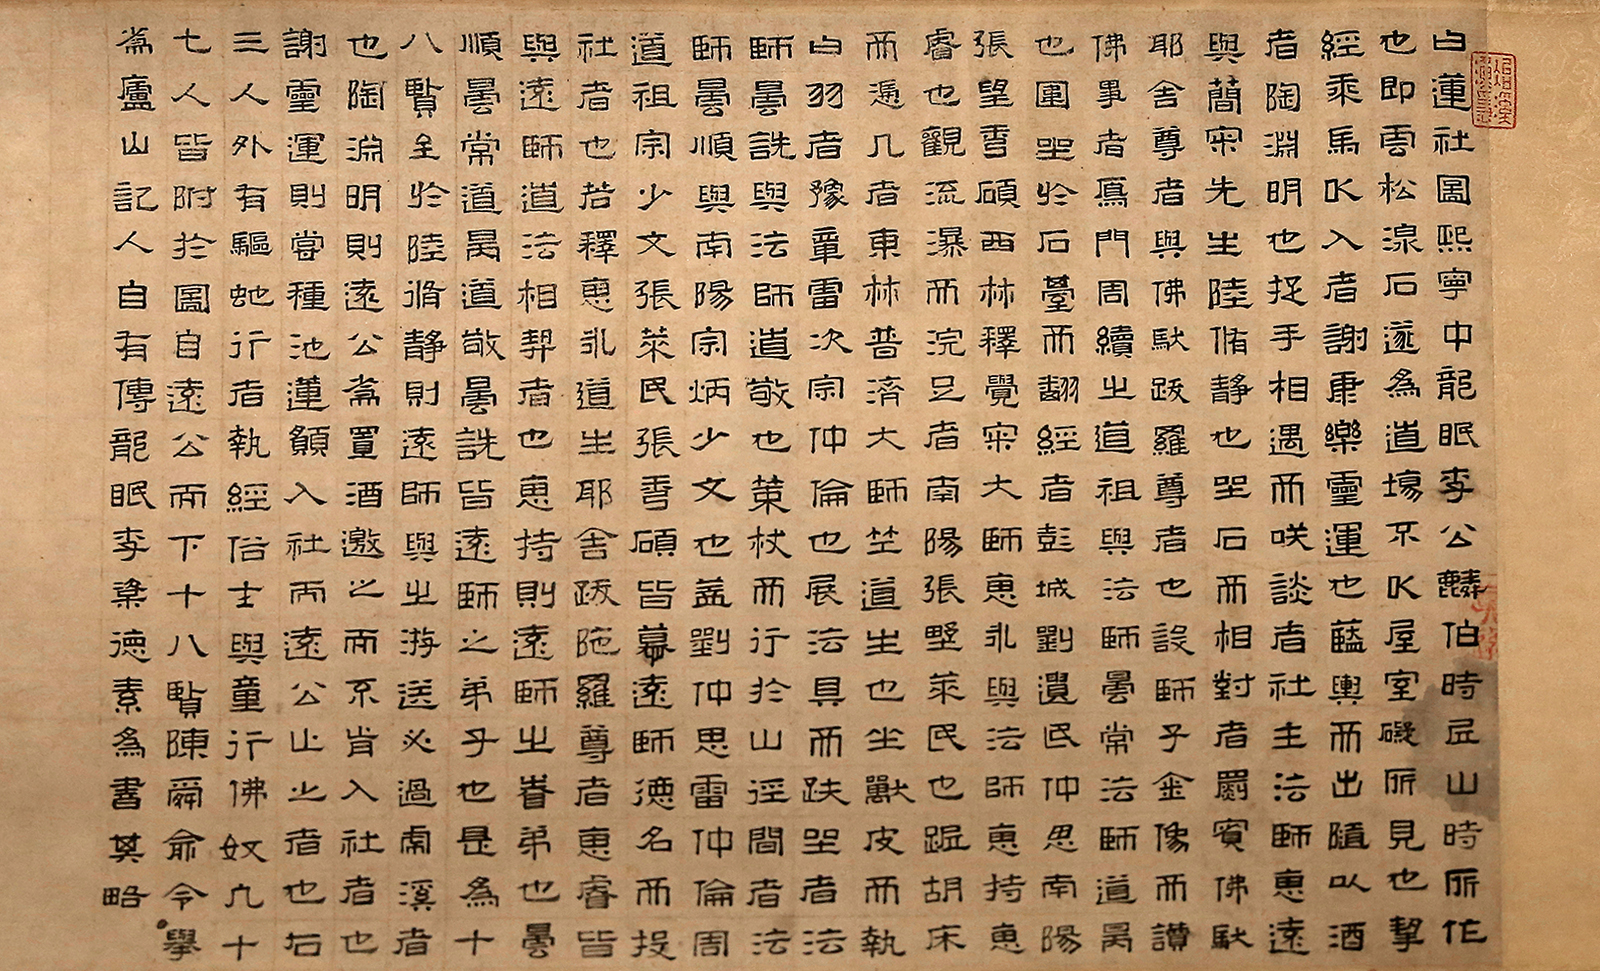 白蓮社圖熙寧中龍眠李公麟伯時丘山時所作
也即雲松湶石遂為道場不以屋室礙所見也挈
經乘馬以入者謝康樂靈運也藍輿而出隨以酒
者陶淵明也捉手相遇而咲談者社主法師惠遠
與蕳宋先生陸脩靜也坐石而相對者罽賓佛馱
耶舍尊者與佛馱跋羅尊者也設師子金像而讚
佛事者鴈門周續之道祖與法師曇常法師道昺
也圍坐於石臺而翻經者彭城劉遺民仲思南陽
張望香碩西林釋覺宋大師惠永與法師惠持惠
睿也觀流瀑而浣足者南陽張野萊民也踞胡床
而憑几者東林普濟大師竺道生也坐獸皮而執
白羽者豫章雷次宗仲倫也展法具而趺坐者法
師曇詵與法師道敬也策杖而行於山徑間者法
師曇順與南陽宗炳少文也蓋劉仲思雷仲倫周
道祖宗少文張萊民張香碩皆慕遠師德名而投
社者也若釋惠永道生耶舍跋陀羅尊者惠睿皆
與遠師道法相契者也惠持則遠師之眷弟也曇
順曇常道昺道敬曇詵皆遠師之弟子也是為十
八賢至於陸脩靜則遠師與之游送必過虎溪者
也陶淵明則遠公為置酒邀之而不肯入社者也
謝靈運則嘗種池蓮願入社而遠公止之者也右
三人外有驅虵行者執經俗士與童行佛奴凡十
七人皆附於圖自遠公而下十八賢陳舜俞令舉
為廬山記人自有傳龍眠李楶德素為書其略